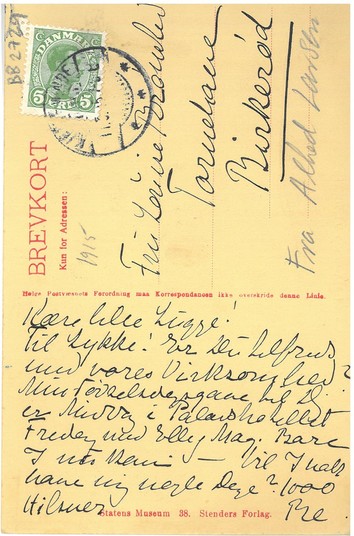 BB2729
DANMARK
5 ØRE 5
BREVKORT
Kun for Adressen:
1915
Fru Louise
Tornehave
Birkerød
Fra Alhed Larsen
Ifølge Postvæsenets Forordning maa Korrespondancen ikke overskride denne Linie.
Kære lille Lugge!
Til Lykke! Er Du tilfreds
med vores Virksomhed?
Min Fødselsdagsgave til D.
er Middag i Palacehotellet
Fredag med Elle, Mag. Bare
I nu kan — vil I
have mig nogle Dage? 1000
Hilsner
Statens Museum 38. Stenders Forlag.